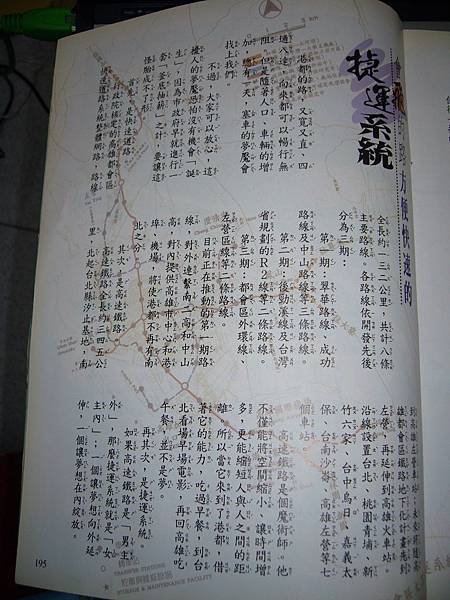 會飛的路方便快速的
捷運系統
港都的路,又寬又直、四
通八達,向來都可以暢行無
阻。但是隨著人口、車輛的增
加,總有一天,塞車的夢魘會
找上我們。
不過,大家可以放心,這
擾人的夢魘恐怕沒有機會「誕
生」,因為市政府早就進行一
套「釜底抽薪」之計,要讓這
怪胎成不了形。
首先,是快速道路。
行政院核定的高雄都會區
快速道路系統整體網路,路線
全長約一三二公里,共計八條
主要路線。各路線依開發先後
分為三期:
第一期:翠華路線、成功
路線及中山路線等三條路線。
第二期:後勁溪線及台灣
省規劃的R2線等二條路線。
第三期:都會區外環線、
左營區線等二條路線。
目前正在推動的第一期路
線,對外連繫南二高和中山
高,對內提供高雄市中心和港
埠、機場,將使港都不再有南
北之分。
其次,是高速鐵路。
高速鐵路全長約三四五公
里,北起台北縣汐止基地,南
到高雄左營車站;未來將隨高
雄都會區鐵路地下化計畫先到
左營,再延伸到高雄火車站。
沿線設置台北、桃園青埔、新
竹六家、台中烏日、嘉義太
保、台南沙崙、高雄左營等七
個車站。
高速鐵路是個魔術師。他
不僅能將空間縮小,讓時間增
多,更能縮短人與人之間的距
離。所以當它來到了港都,借
著它的能力,吃過早餐,到台
北看場早場電影,再回高雄吃
午餐,並不是夢。
再其次,是捷運系統。
如果高速鐵路是「男主
外」,那麼捷運系統就是「女
主內」;一個讓夢想向外延
伸,一個讓夢想在內綻放。
195
TRANSFER STATIONS
STORAGE & MAINTENANCE FACILITY